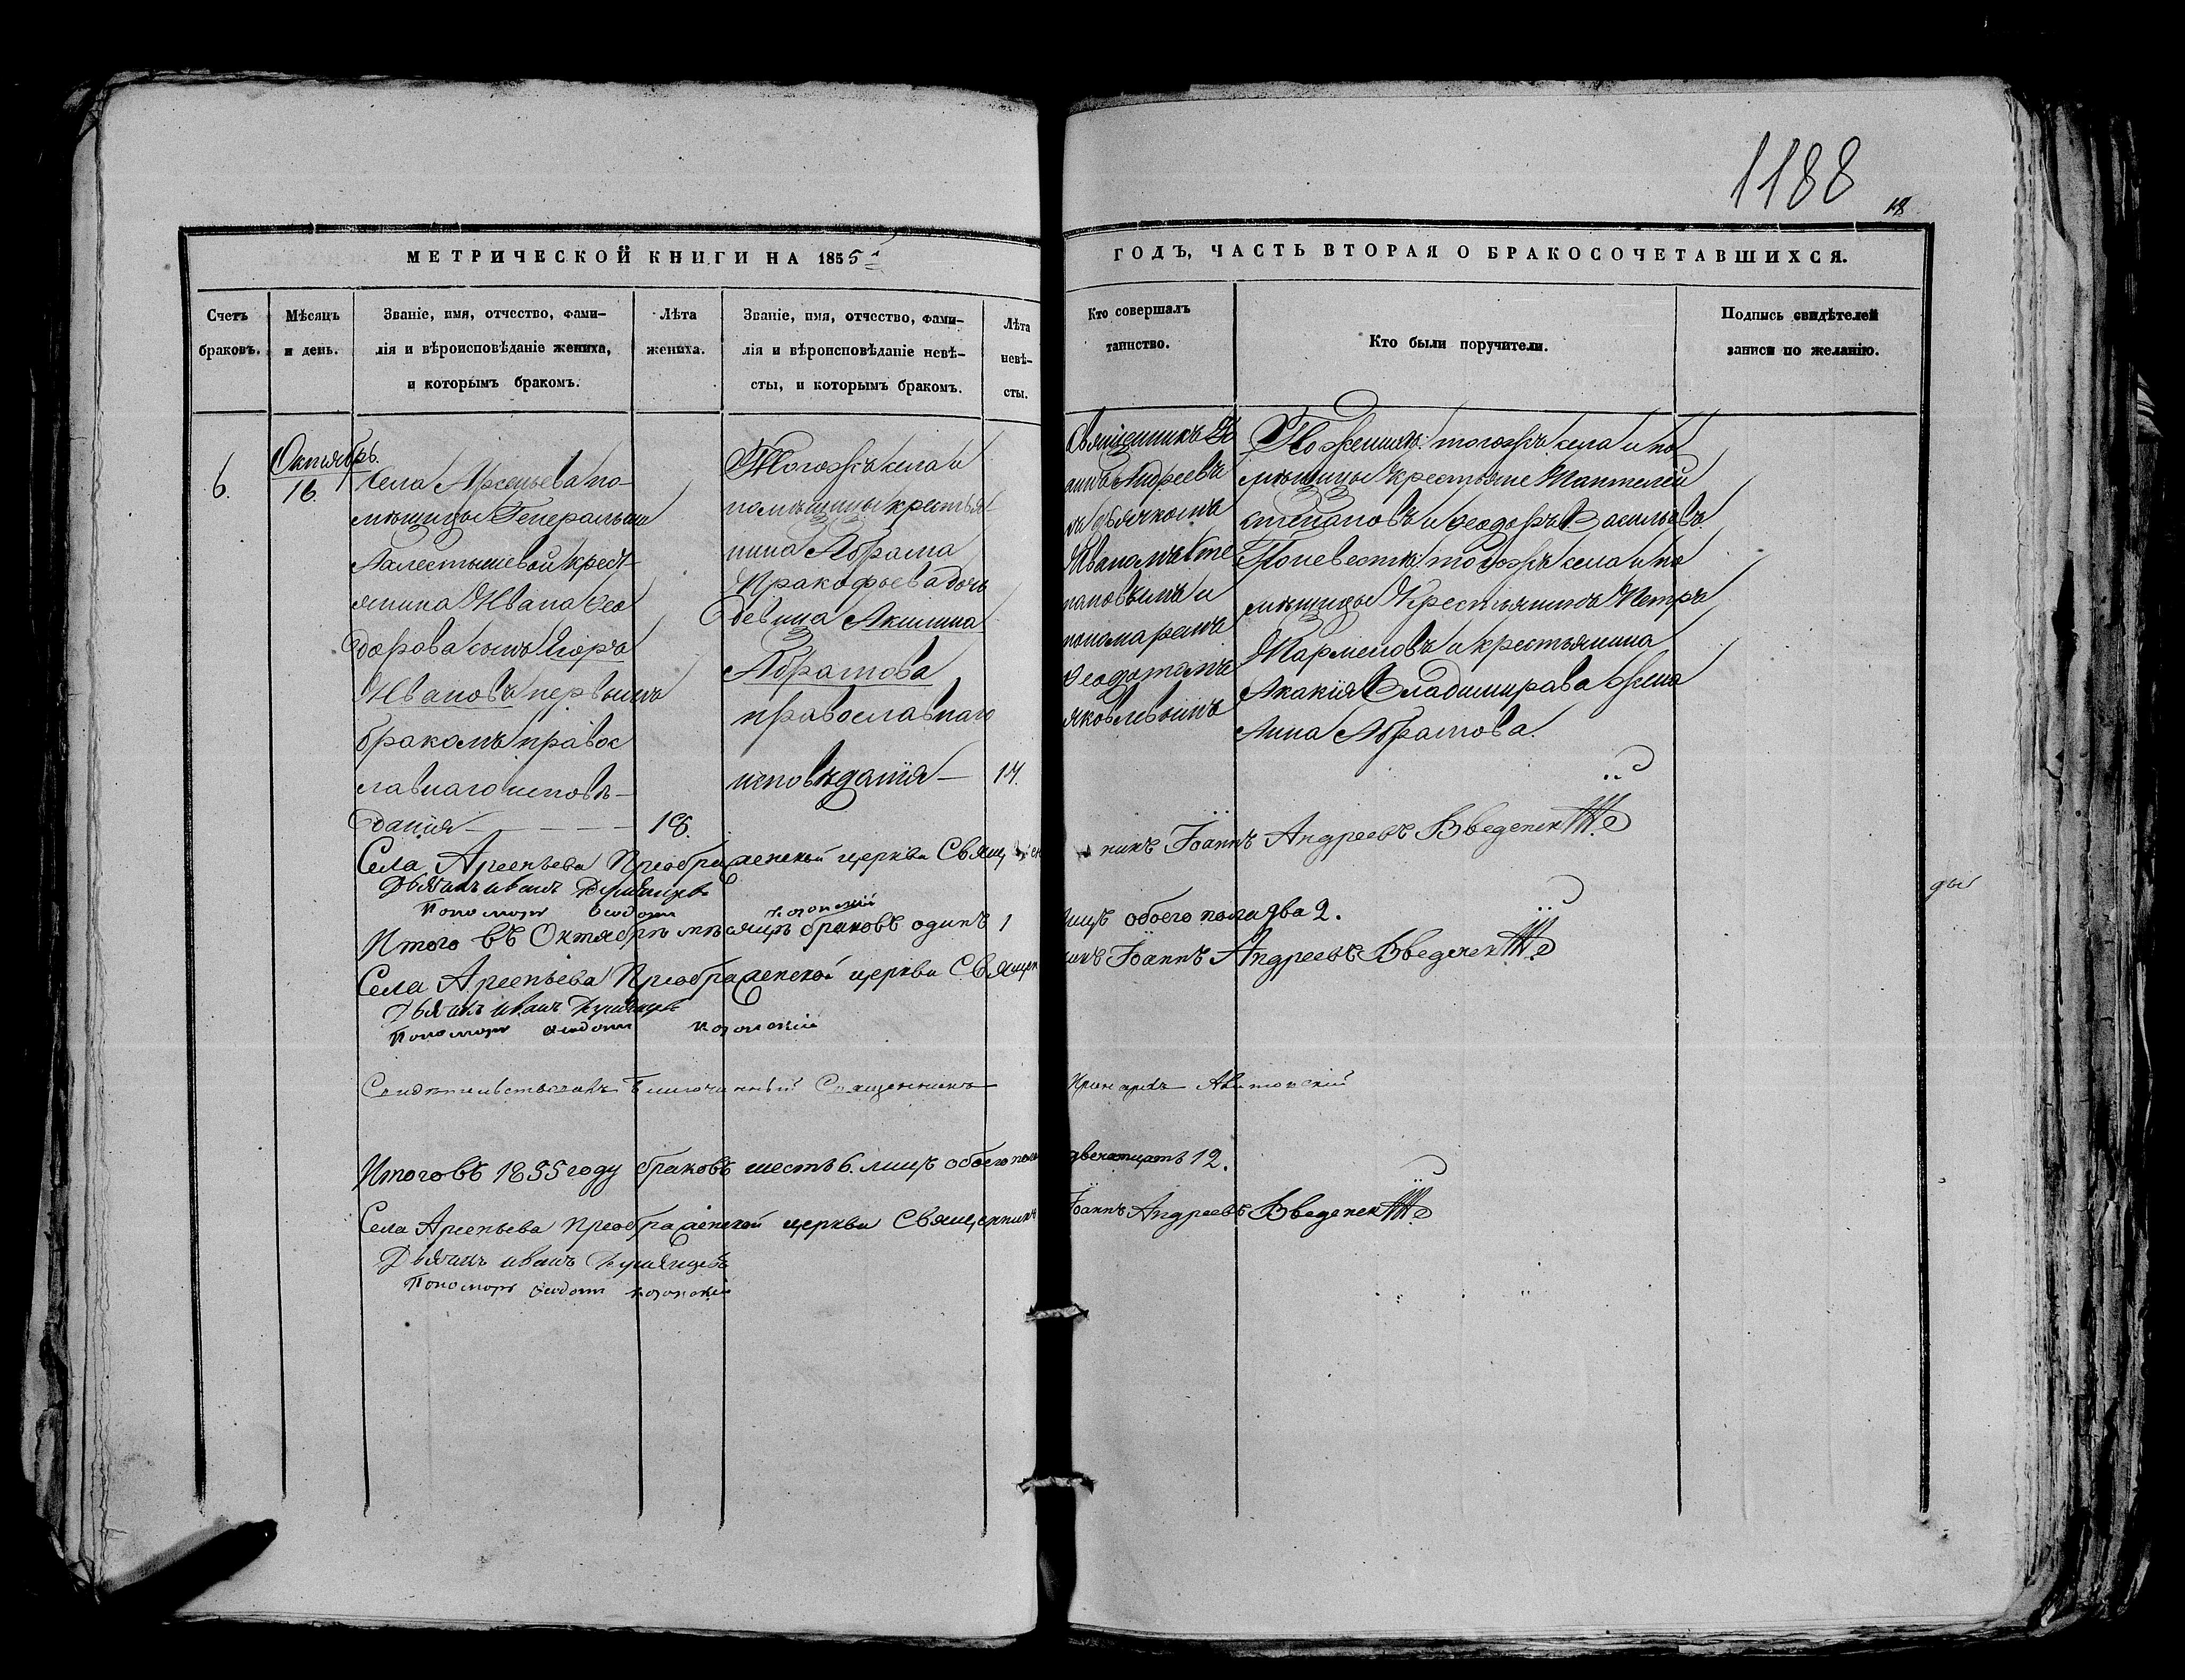 1188
18
МЕТРИЧЕСКОЙ КНИГИ НА 1855
ГОДЪ, ЧАСТЬ ВТОРАЯ О БРАКОСОЧЕТАВШИХСЯ.
Счетъ
браковъ.
Мѣсяцъ
и день.
Званіе, имя, отчество, фами-
лія и вѣроисповѣданіе жениха,
и которымъ бракомъ.
Лѣта
жениха.
Званіе, имя, отчество, фами-
лія и вѣроисповѣданіе невѣ-
сты, и которымъ бракомъ.
Лѣта
невѣ-
сты.
Кто совершалъ
таинство.
Кто были поручители.
Подпись свидѣтелей
записи по желанію.
6.
Октябрь.
16.
Села Арсеньева по-
мѣщицы Генеральши
крест-
янина Ивана Ѳео
дорова сынъ Егоръ
Ивановъ первымъ
бракомъ правос
лавнаго исповѣ-
данія
18.
Тогожъ села и
помѣщицы крестья-
нина Абрама
Пракофьева дочь
девица Акилина
Абрамова
православнаго
исповѣданія
17.
Священникъ Іо
аннъ Андреевъ
съ дьячкомъ
Иваномъ Сте
пановымъ и
понамаремъ
Ѳеодотомъ
яковлевымъ
По женихѣ: тогожъ села и по
мѣщицы крестьяне Пантелей
степановъ и Ѳеодоръ Васильевъ
По невестѣ: тогожъ села и по
мѣщицы Крестьянинъ Петръ
Парменовъ и крестьянина
Акакія Владимирава жена
Анна Абрамова.
Села Арсеньева Преображенской церкви Священникъ Іоаннъ Андреевъ Введенскій
Дьячекъ иванъ
Пономарь Ѳеодотъ казанскій
Итого въ Октябрѣ мѣсяцѣ браковъ одинъ 1 лицъ обоего пола два 2.
Села Арсеньева Преображенской церкви Священникъ Іоаннъ Андреевъ Введенскій
Дьячекъ иванъ
Пономарь Ѳеодотъ казанскій
Свидѣтельствовалъ Благочинный Священникъ
Итого въ 1855 году браковъ шесть 6. лицъ обоего пола двенатцать 12.
Села Арсеньева Преображенской церкви Священникъ Іоаннъ Андреевъ Введенскій
Дьячекъ иванъ
Пономарь Ѳеодотъ казанскій